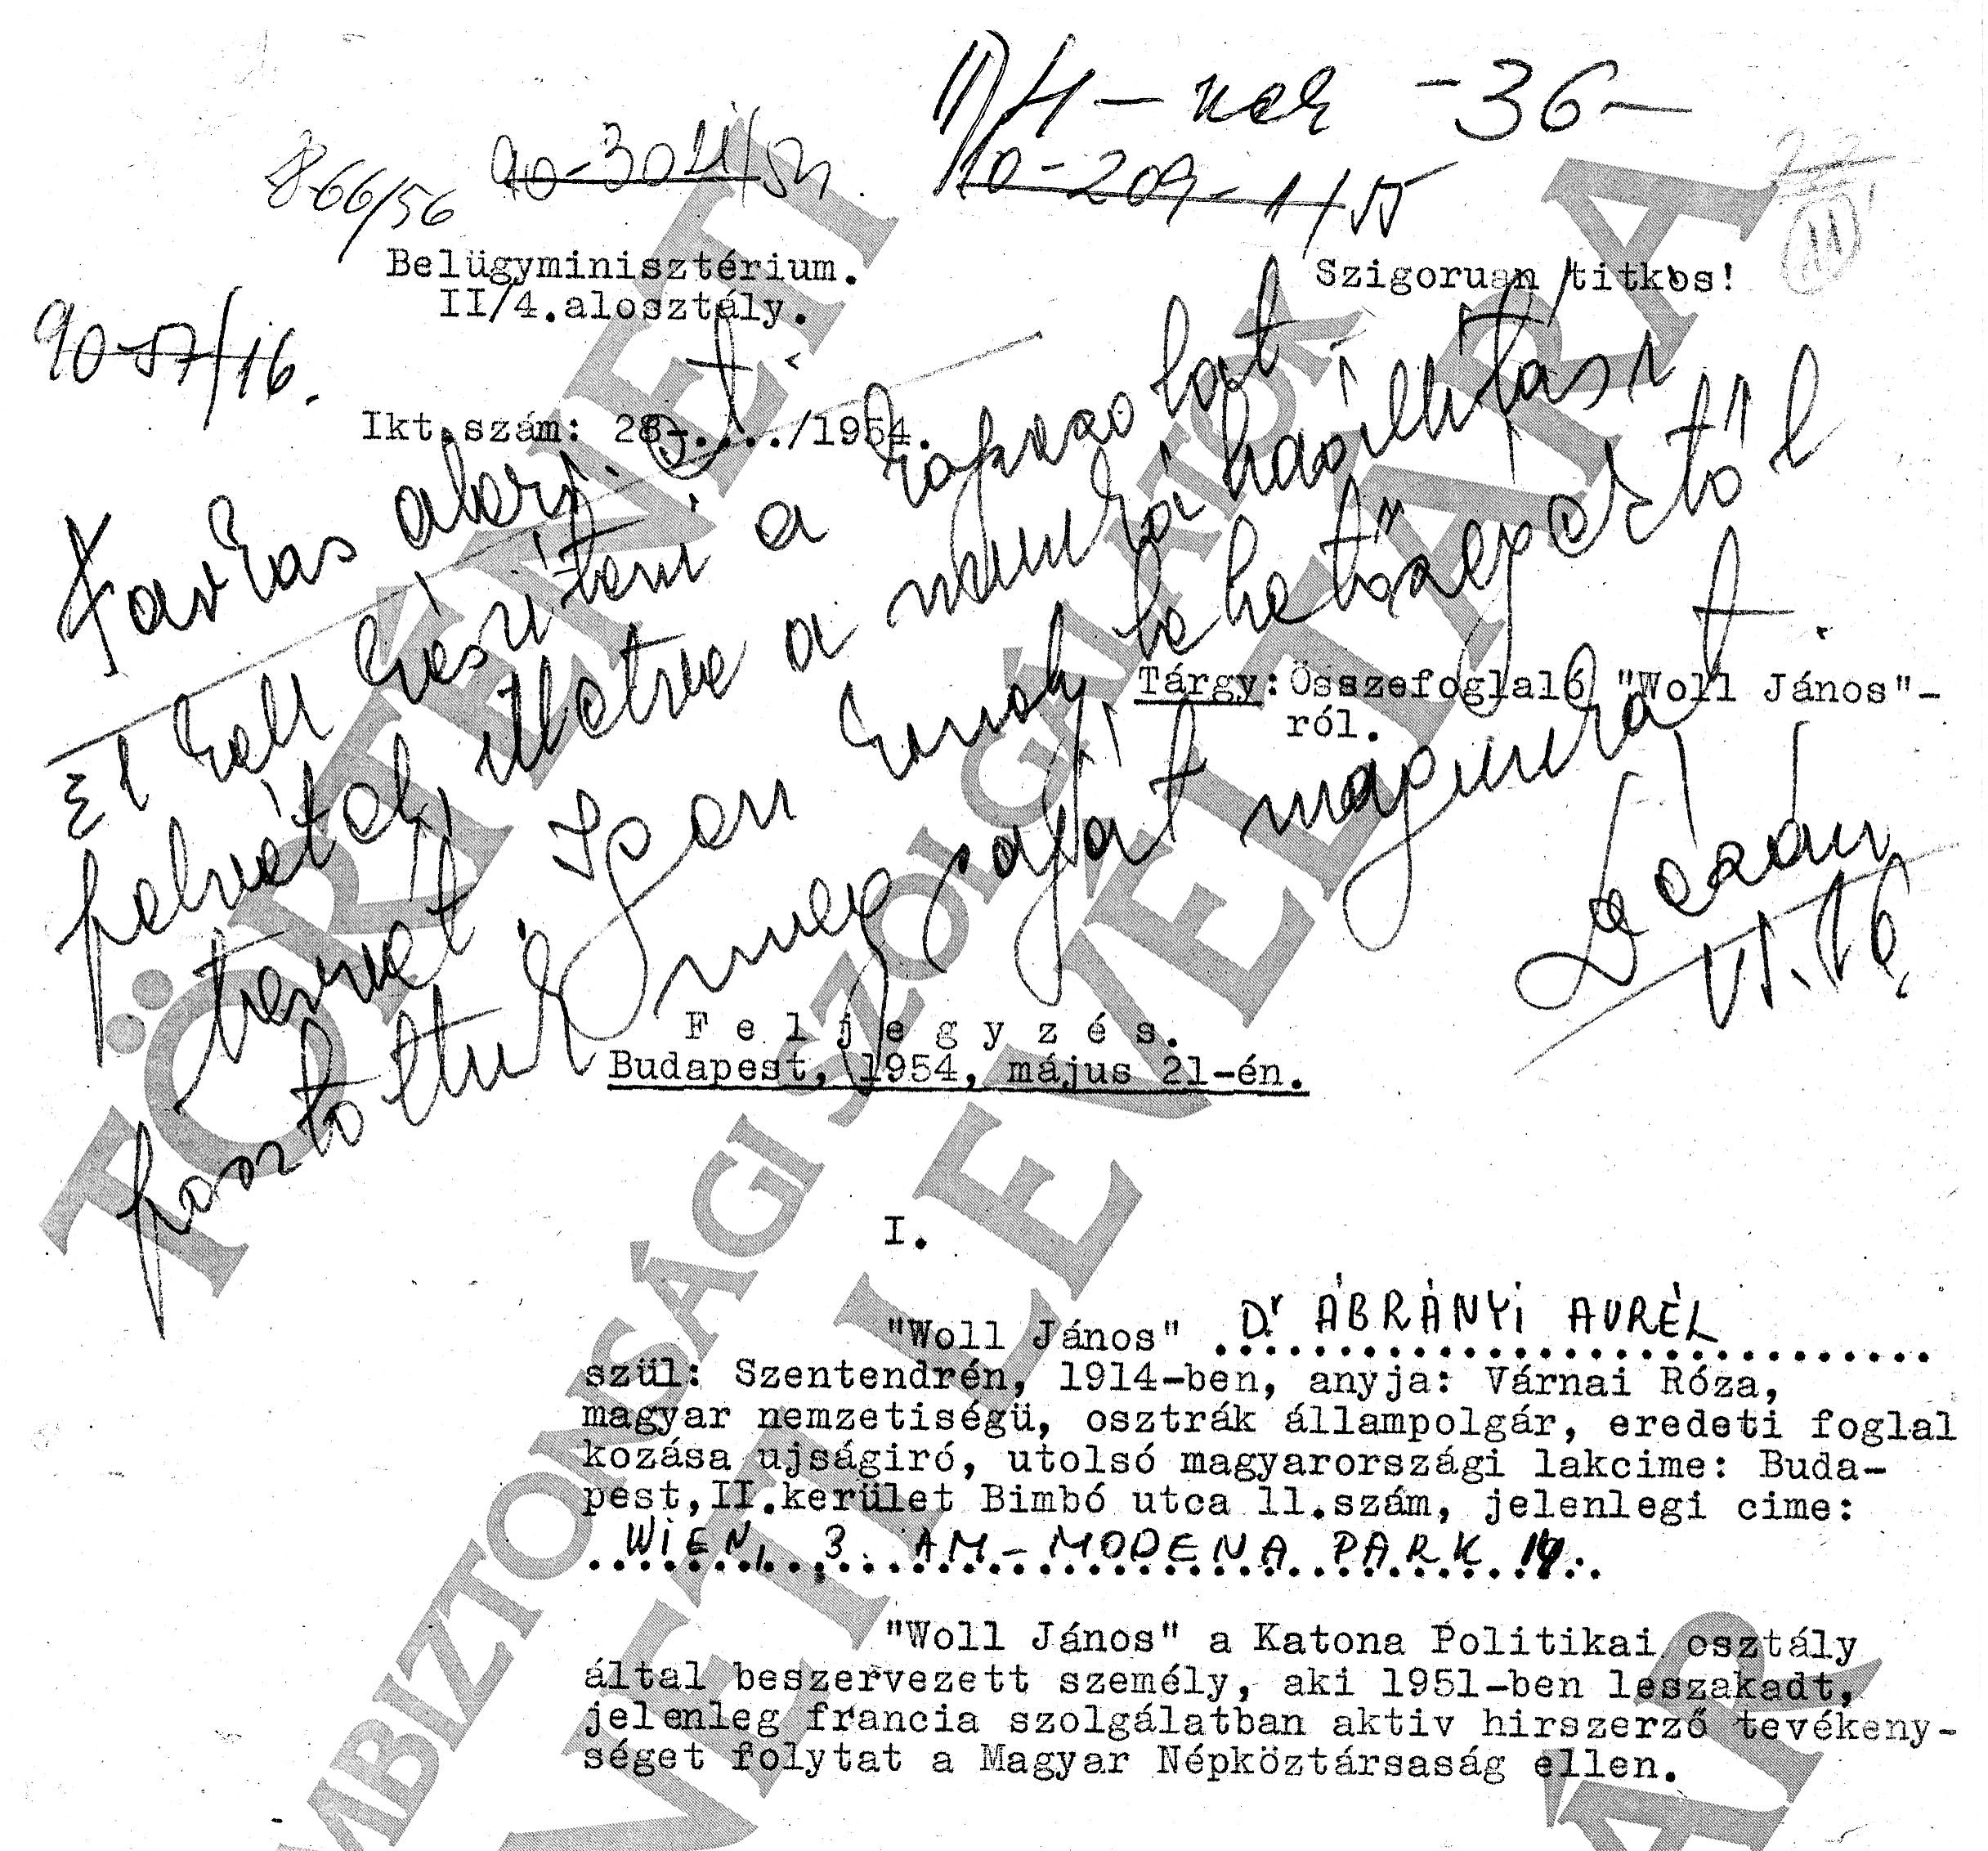 II/H-nek -36-
866/56 90-3021/54.
10-209-1/55
22
11
Belügyminisztérium.
II/4.alosztály.
Szigoruan titkos!
90-57/16.
Ikt.szám: 28-..../1954.
Farkas elvt.
El kell készíteni a kapcsolat
felvételi, illetve a munkábaállítási
tervet. Igen ennek lehetőségektől
fosztottuk meg saját magunkat.
VI.16.
Tárgy: Összefoglaló "Woll János"-
ról.
F e l j e g y z é s.
Budapest, 1954, május 21-én.
I.
"Woll János" Dr ÁBRÁNYI AURÉL
szül: Szentendrén, 1914-ben, anyja: Várnai Róza,
magyar nemzetiségü, osztrák állampolgár, eredeti foglal
kozása ujságiró, utolsó magyarországi lakcime: Buda-
pest,II.kerület Bimbó utca 11.szám, jelenlegi cime:
WIEN, 3. AM-MODENA PARK
"Woll János" a Katona Politikai osztály
által beszervezett személy, aki 1951-ben leszakadt,
jelenleg francia szolgálatban aktiv hirszerző tevékeny-
séget folytat a Magyar Népköztársaság ellen.
TÖRTÉNETI
ÁLLAMBIZTONSÁGI SZOLGÁLATOK
LEVÉLTÁRA